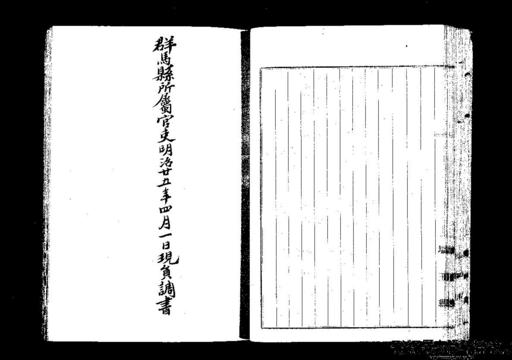 群馬縣所屬官吏明治廿五年四月一日現負調書